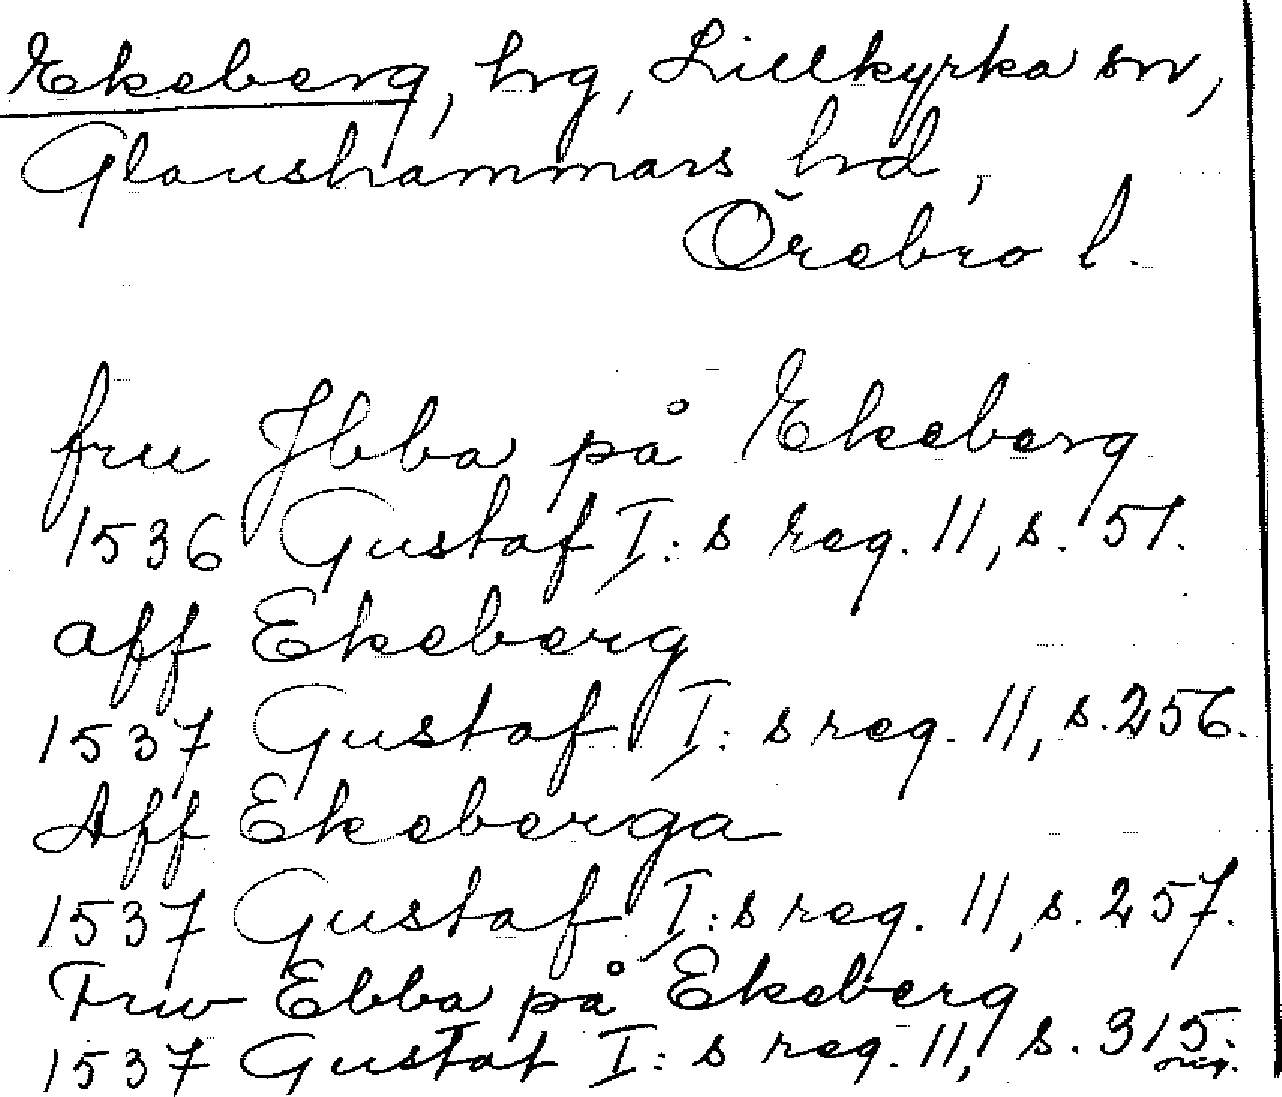 Ekeberg, hrg, Lillkyrka sn,
Glanshammars hrd,
Örebro l.
fru Jbba på Ekeberg
1536 Gustaf I:s reg. 11, s. 51.
aff Ekeberg
1537 Gustaf I:s reg. 11, s. 256.
Aff Ekeberga
1537 Gustaf I:s reg. 11, s. 257.
Frw Ebba på Ekeberg
1537 Gustaf I:s reg. 11, s. 315.
orig.